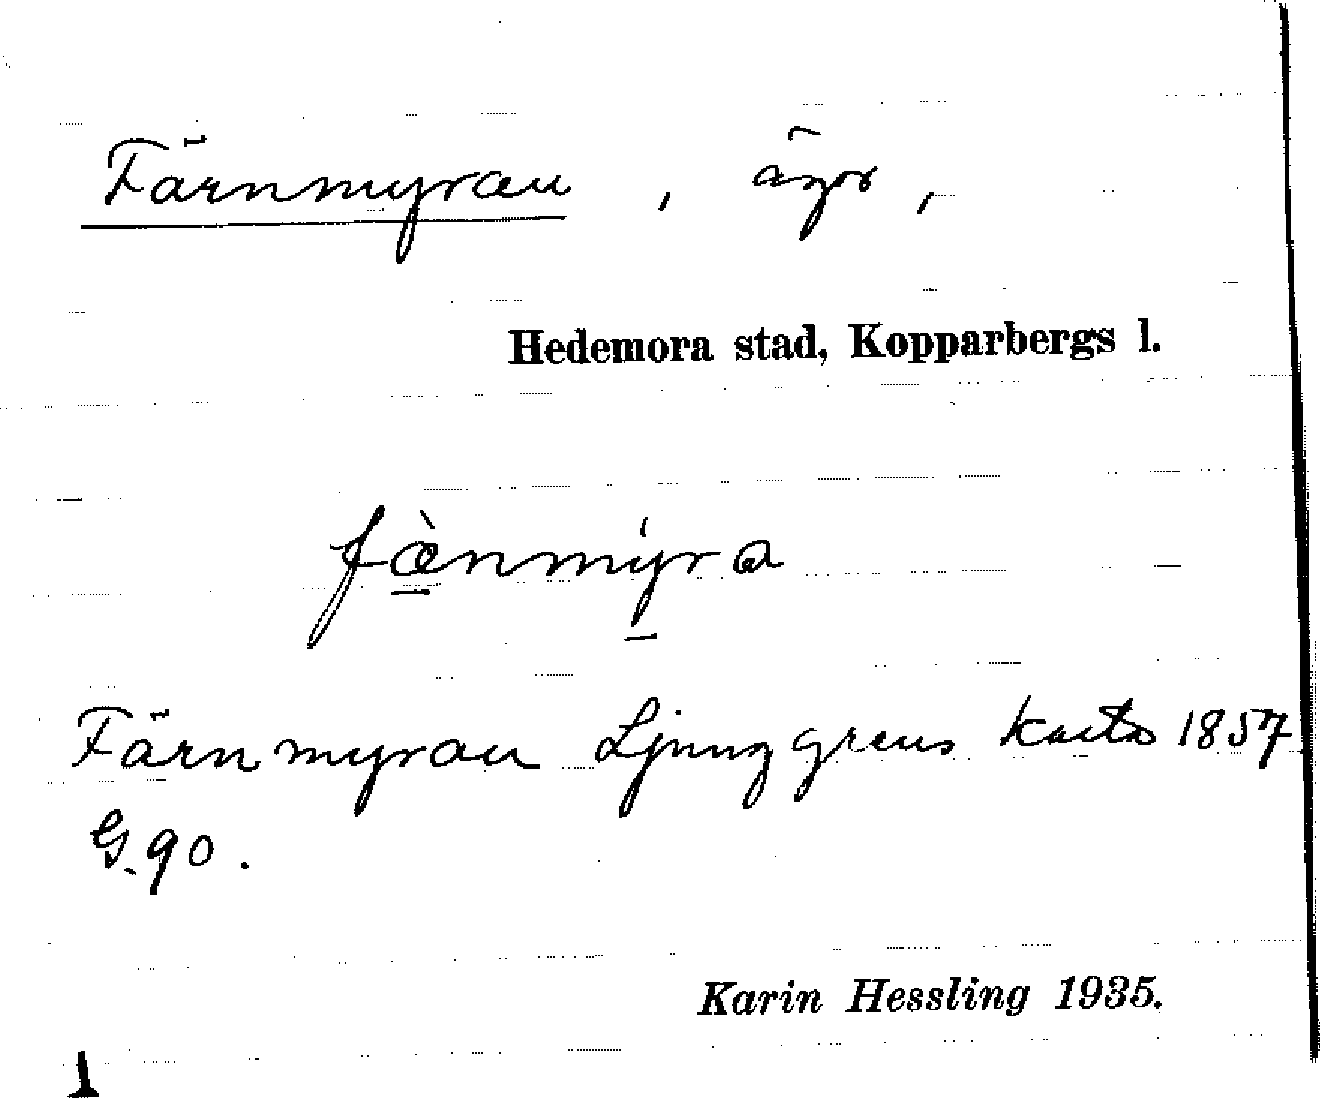 Färnmyran, ägor,
Hedemora stad, Kopparbergs l.
fæ̀nmýra
Färnmyran Ljunggrens karta 1857
G. 90.
Karin Hessling 1935.
1